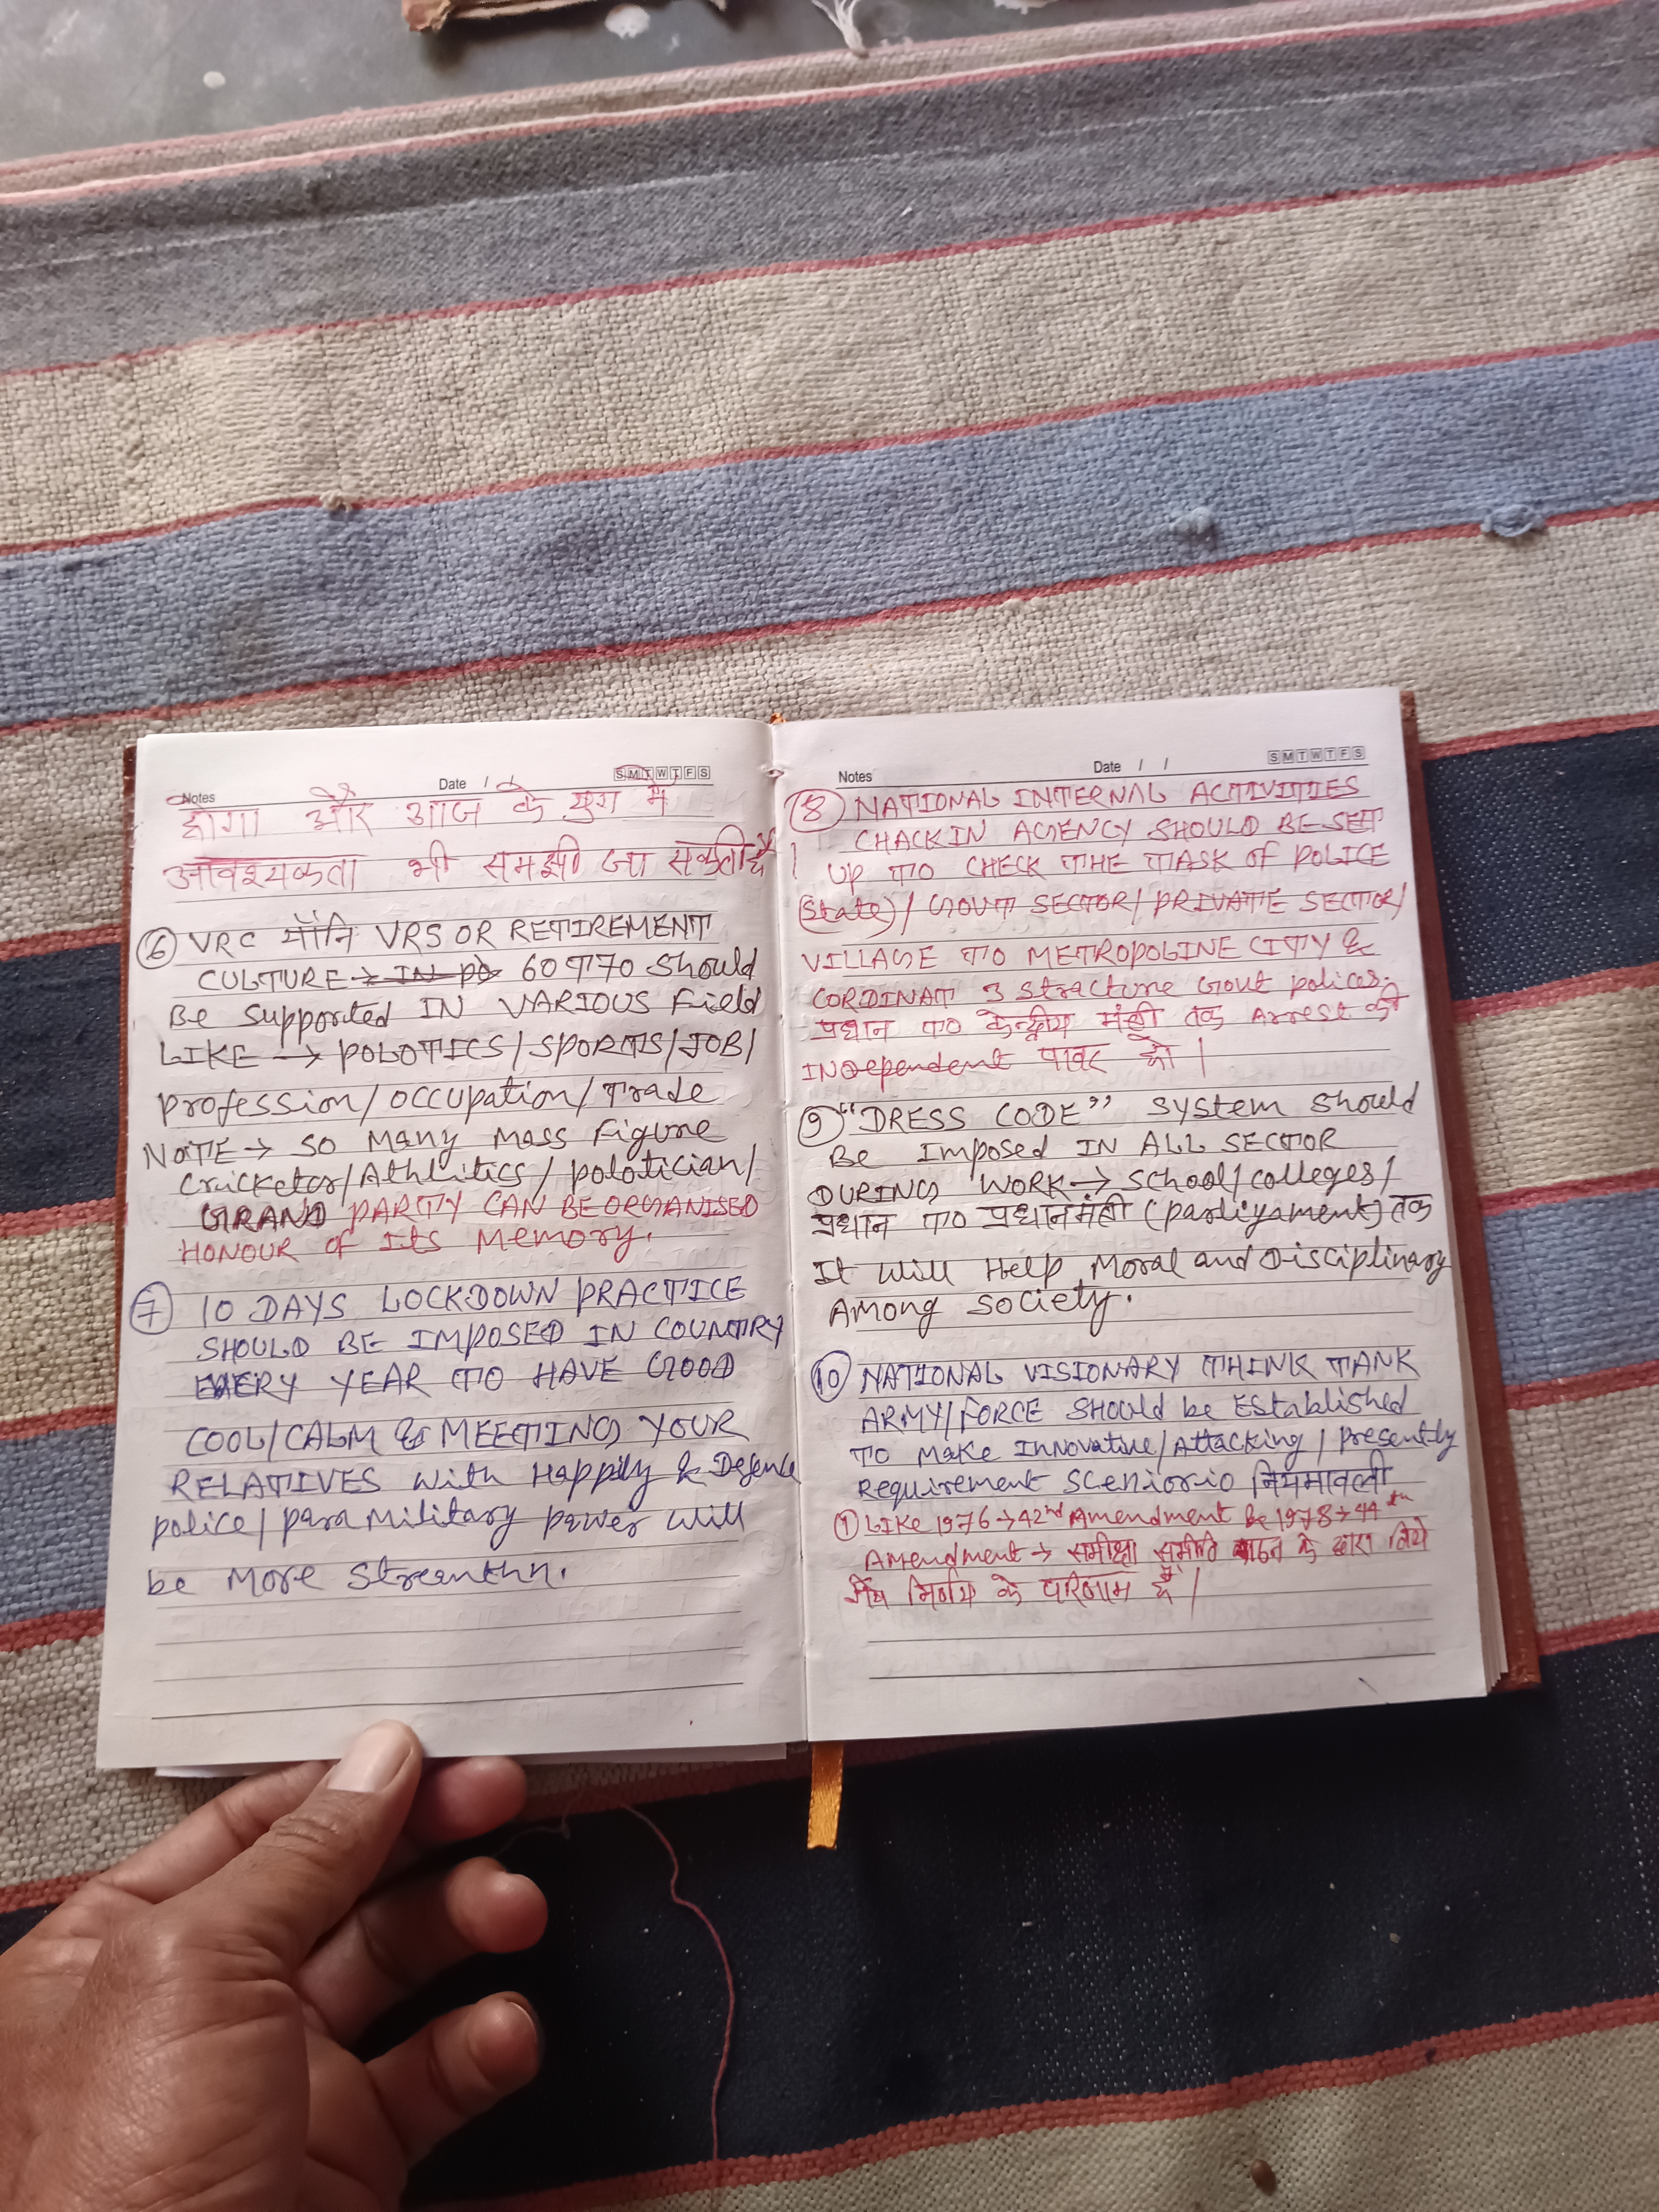 Notes Date / / S M T W T F S
होगा और आज के युग में
आवश्यकता भी समझी जा सकती है।
⑥ VRC यानि VRS OR RETIREMENT
CULTURE → IN PO 60 TO 70 Should
Be Supported IN VARIOUS Field
LIKE → POLOTICS/SPORTS/JOB/
Profession/occupation/Trade
NOTE → SO MANY MASS Figure
Cricketer/Athlitics/polotician/
GRAND PARTY CAN BE ORGANISED
HONOUR of Its Memory.
⑦ 10 DAYS LOCKDOWN PRACTICE
SHOULD BE IMPOSED IN COUNTRY
EVERY YEAR TO HAVE GOOD
COOL/CALM & MEETING YOUR
RELATIVES With Happily & Defence
police/para Military power Will
be More Streanthn.
Notes Date / / S M T W T F S
⑧ NATIONAL INTERNAL ACTIVITIES
CHACKIN AGENCY SHOULD BE SET
UP TO CHECK THE TASK OF POLICE
(State)/GOVT SECTOR/PRIVATE SECTOR/
VILLAGE TO METROPOLINE CITY &
CORDINAT 3 Stracture Govt polices.
प्रधान TO केन्द्रीय मंत्री तक Arrest की
INDependent पावर हो।
⑨ "DRESS CODE" System Should
Be Imposed IN ALL SECTOR
DURING WORK → School/colleges/
प्रधान TO प्रधानमंत्री (Parliyament) तक
It Will Help Moral and Disciplinary
Among Society.
⑩ NATIONAL VISIONARY THINK TANK
ARMY/FORCE Should be Established
TO Make Innovative/Attacking/Presently
Requirement Sceniorio नियमावली
① LIKE 1976 → 42nd Amendment Be 1978 → 44th
Amendment → समीक्षा समिति के द्वारा लिये
निर्णय के परिणाम है।